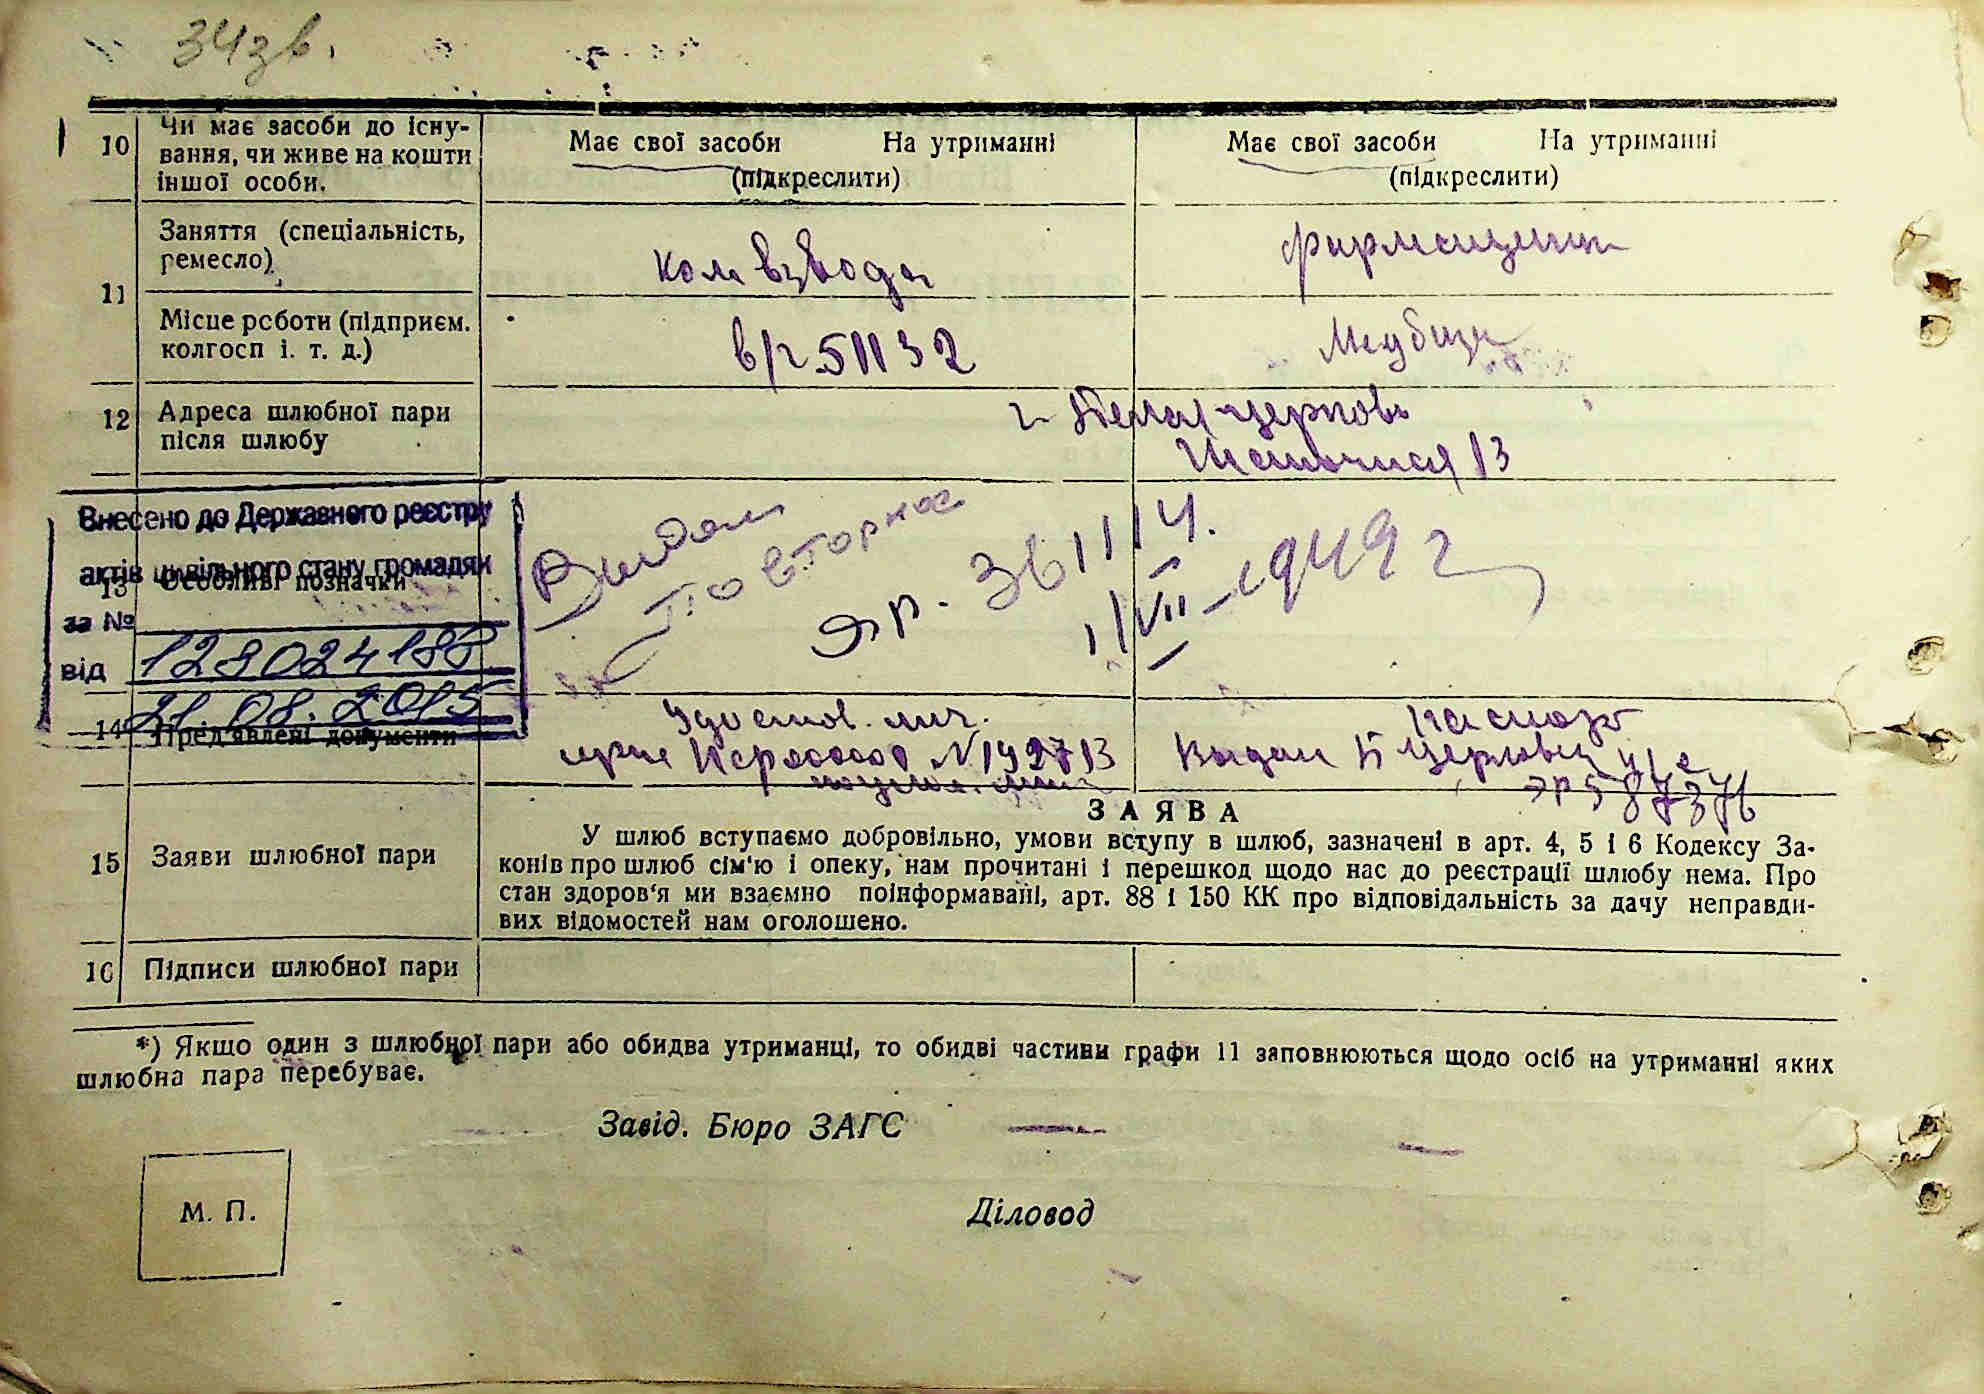 34зв.
10
Чи має засоби до існу-
вання, чи живе на кошти
іншої особи.
Має свої засоби На утриманні
(підкреслити)
Має свої засоби На утриманні
(підкреслити)
11
Заняття (спеціальність,
ремесло)
ком взвода
фармацевт
Місце рсботи (підприєм.
колгосп і. т. д.)
в/ч 51132
12
Адреса шлюбної пари
після шлюбу
г. Белая-церковь
13
Внесено до Державного реєстру
актів цивільного стану громадян
за №
128024188
від
21.08.2015
13
Особливі позначки
Выдан
повторное
ЭР. 361114.
1/VII-1949 г
14
Пред'явлені документи
Удостов. лич.
N 192713
паспорт
Выдан Б Церковск
ЭР 587376
15
Заяви шлюбної пари
ЗАЯВА
У шлюб вступаємо добровільно, умови вступу в шлюб, зазначені в арт. 4, 5 і 6 Кодексу За-
конів про шлюб сім'ю і опеку, нам прочитані і перешкод щодо нас до реєстрації шлюбу нема. Про
стан здоров'я ми взаємно поінформавані, арт. 88 і 150 КК про відповідальність за дачу неправди-
вих відомостей нам оголошено.
16
Підписи шлюбної пари
*) Якщо один з шлюбної пари або обидва утриманці, то обидві частини графи 11 заповнюються щодо осіб на утриманні яких
шлюбна пара перебуває.
Завід. Бюро ЗАГС
М. П.
Діловод